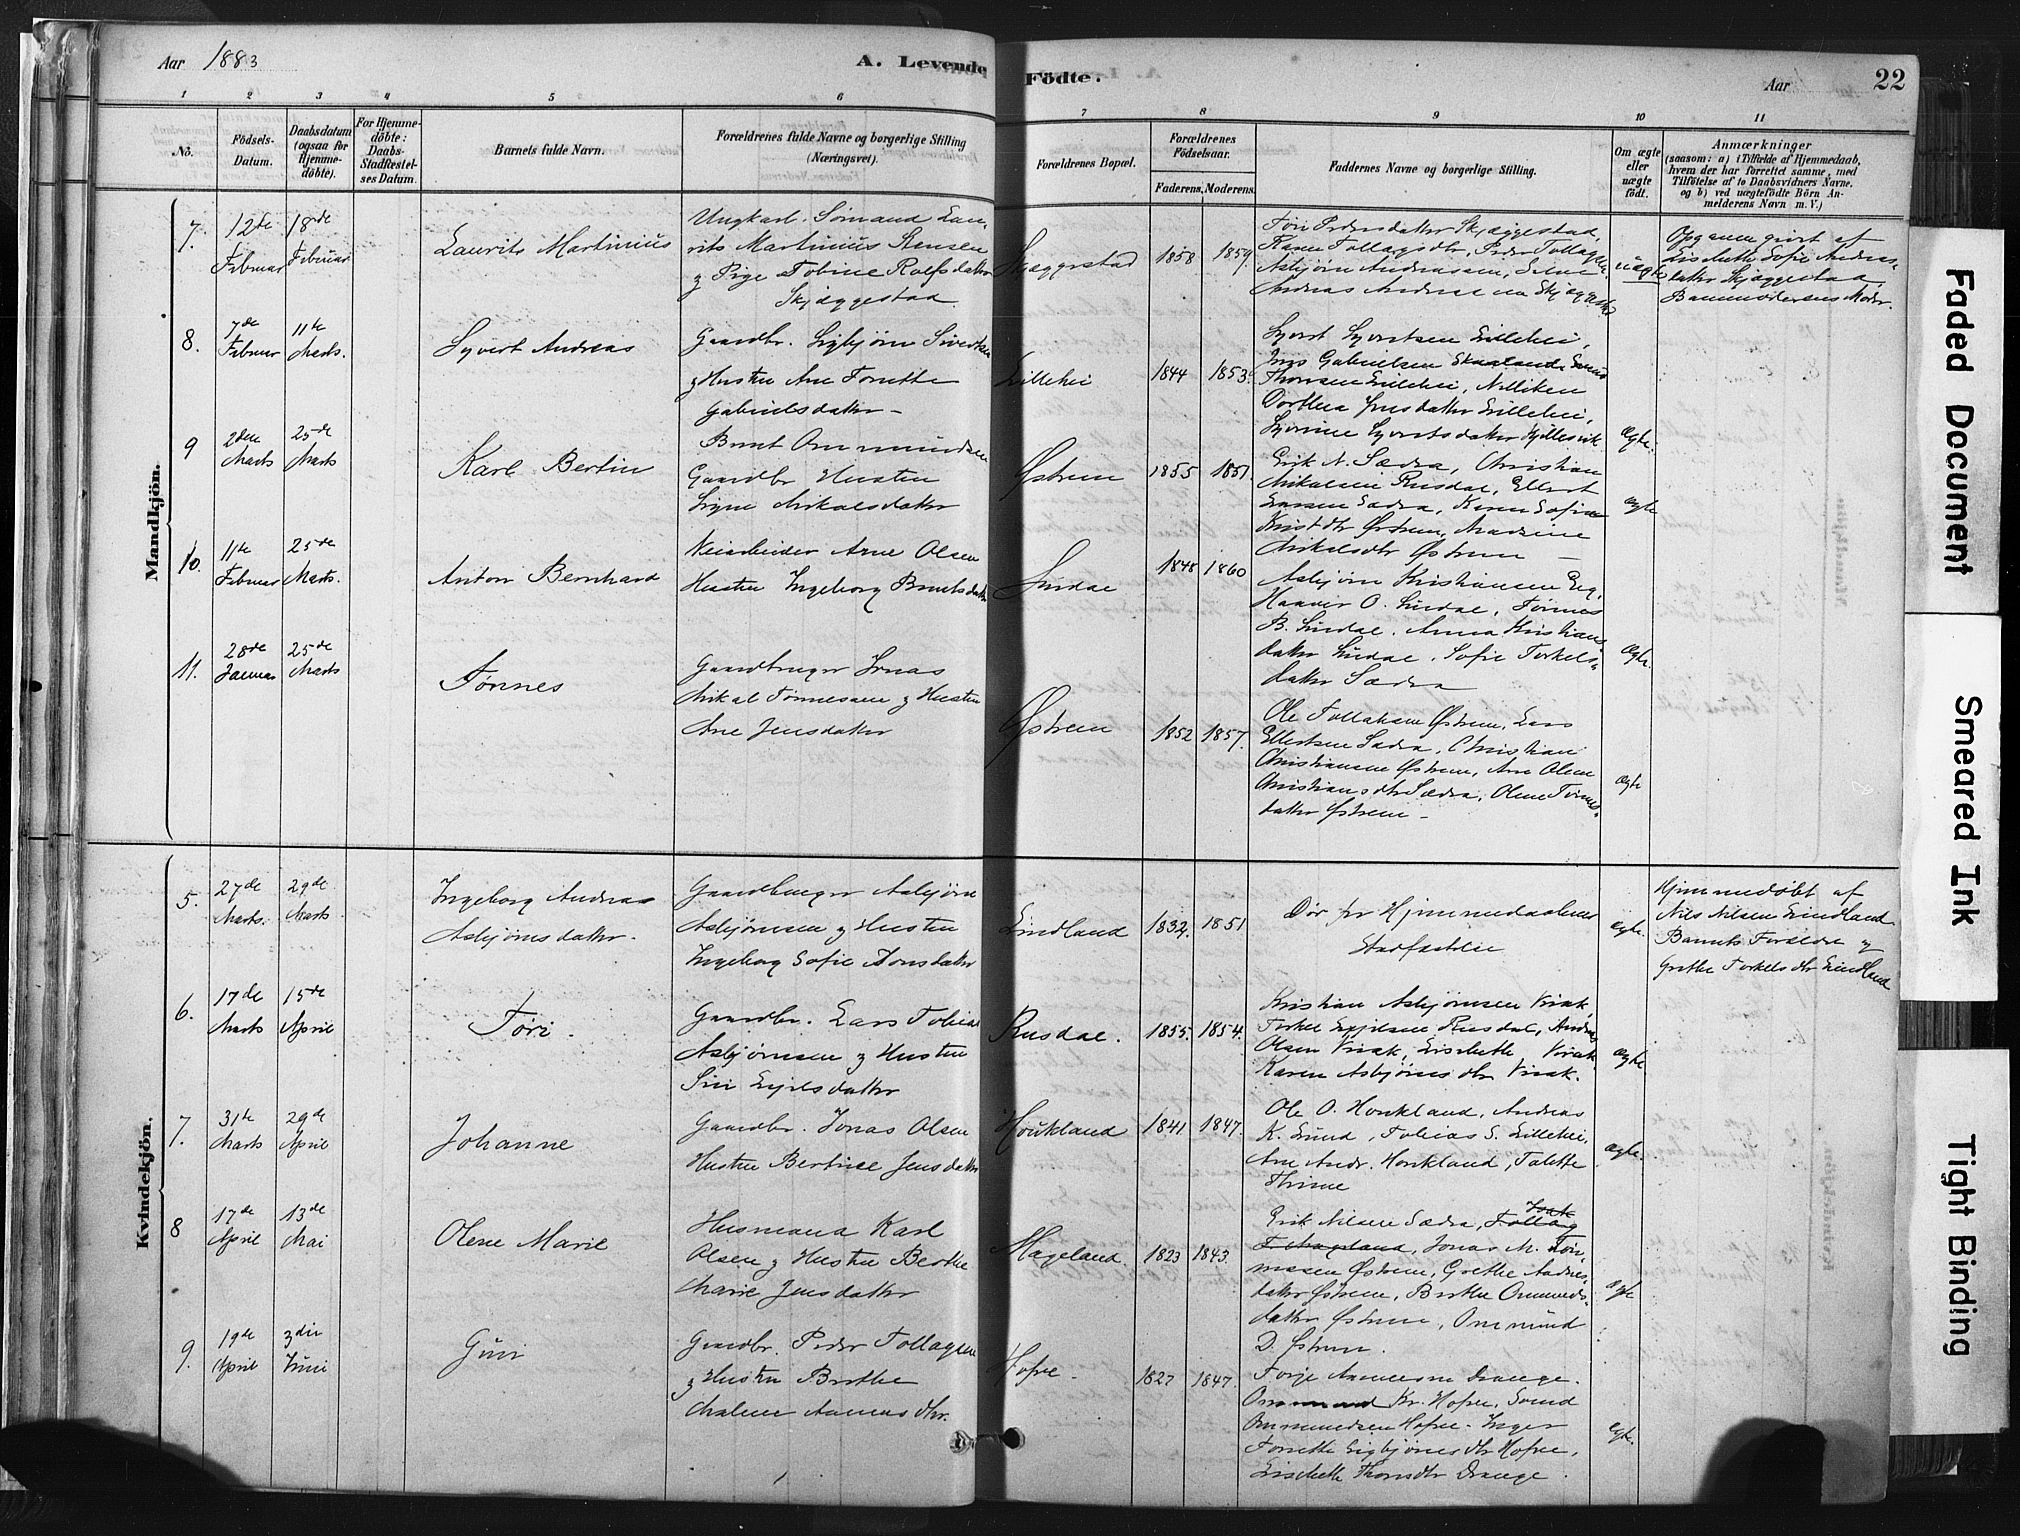 Aar 1883
A. Levende Födte.
Aar
22
1 2 3 4 5 6 7 8 9 10 11
No.
Födsels-Datum.
Daabsdatum (ogsaa for Hjemme-döbte).
For Hjemme-döbte: Daabs-Stadfæstel-ses Datum.
Barnets fulde Navn.
Forældrenes fulde Navne og borgerlige Stilling (Næringsvei).
Forældrenes Bopæl.
Forældrenes Födselsaar.
Faderens. Moderens.
Faddernes Navne og borgerlige Stilling.
Om ægte eller uægte födt.
Anmærkninger
(saasom: a) i Tilfælde af Hjemmedaab,
hvem der har forrettet samme, med
Tilföielse af to Daabsvidners Navne,
og b) ved uægtefödte Börn An-
melderens Navn m. V.)
Mandkjön.
7. 12te Februar 18de Februar
Laurits Martinius
Ungkarl. Sømand Lau-
rits Martinius Stensen
og Pige Tobine Rolfsdatter
Skjæggestad
Skjæggestad 1858 1859.
Tøri Pedersdatter Skjæggestad,
Karen Tollagsdtr,
Asbjørn Andreassen,
Andreas Andreassen Skjæggestad
uægte
Opgaven givet af
Lisebeth Sofie Andreas-
datter Skjæggestad
Barnemoderens Moder.
8. 7de Februar 11te Marts.
Syvert Andreas
Gaardbr. Sigbjørn Sivertsen
og Hustru Ane Tonette
Gabrielsdatter -
Lillehei 1844 1853.
Syvert Syvertsen Lillehei,
Jens Gabrielsen Skaaland,
Thorsen Lillehei,
Dorthea Jensdatter Lillehei,
Syverine Syvertsdatter
Ægte.
9 2den Marts 25de Marts
Karl Bertin
Bernt Ommundsen
Gaardbr Hustru
Signe Mikalsdatter
Østrem 1855 1851.
Erik N. Sædra, Christian
Mikalsen Rusdal, Ellert
Larsen Sædra, Karen Sofie
Østrem,
Mikalsdtr Østrem -
ægte
10. 11te Februar 25de Marts.
Anton Bernhard
Veiarbeider Arne Olsen
Hustru Ingeborg Berntsdatter
Surdal 1848 1860
Asbjørn Kristiansen Eeg,
O. Surdal, Tønnes
B. Surdal, Anna Kristians-
datter Surdal, Sofie Torkels-
datter Sædra
Ægte.
11. 28de Januar 25de Marts
Tønnes
Gaardbruger Jonas
Mikal Tønnesen og Hustru
Ane Jensdatter
Østrem 1852 1857.
Ole Tollaksen Østrem, Lars
Ellertsen Sædra, Christian
Christiansen Østrem, Ane Oline
Christiansdtr Sædra, Oline Tønnes-
datter Østrem -
ægte
Kvindekjön.
5. 27de Marts. 29de Marts
Ingeborg Andrea
Asbjørnsdatter.
Gaardbruger Asbjørn
Asbjørnsen og Hustru
Ingeborg Sofie Tønsdatter
Lindland 1832. 1851
Dør før Hjemmedaabens
Stadfæstelse
ægte.
Hjemmedøbt af
Nils Nilsen Lindland
Barnets Forældre og
Grethe Torkelsdtr Lindland
6. 17de Marts 15de April
Tøri.
Gaardbr. Lars Tobias
Asbjørnsen og Hustru
Siri Eyelsdatter
Rusdal. 1855. 1854.
Kristian Asbjørnsen Virak,
Torkel Rusdal, Andreas
Olsen Virak, Lisebette Virak
Karen Asbjørnsdtr Virak.
Ægte
7. 31te Marts 29de April
Johanne
Gaardbr. Jonas Olsen
Hustru Bertine Jensdatter
Houkland 1841 1847.
Ole O. Houkland, Andreas
K. Lund, Tobias S. Lillehei,
Ane Andr. Houkland, Talette
Ægte.
8 17de April 13de Mai
Olene Marie
Husmand Karl
Olsen og Hustru Berthe
Marie Jensdatter
Mageland. 1823 1843.
Erik Nilsen Sædra, Tollag Isak
T. Mageland, Jonas M. Tøn-
nessen Østrem, Grethe Andreas-
datter Østrem, Berthe Ommunds-
datter Østrem, Ommund
D. Østrem.
ægte
9. 19de April 3die Juni
Guri
Gaardbr. Peder Tollagsen
og Hustru Berthe
Malene Aanensdtr.
Hofre. 1827 1847.
Torje Aanensen Drange.
Ommund Kr. Hofre, Svend
Ommundsen Hofre. Inger
Tonette Sigbjørnsdtr Hofre,
Lisebette Thorsdtr Drange.
Egte.
Faded Document
Smeared Ink
Tight Binding